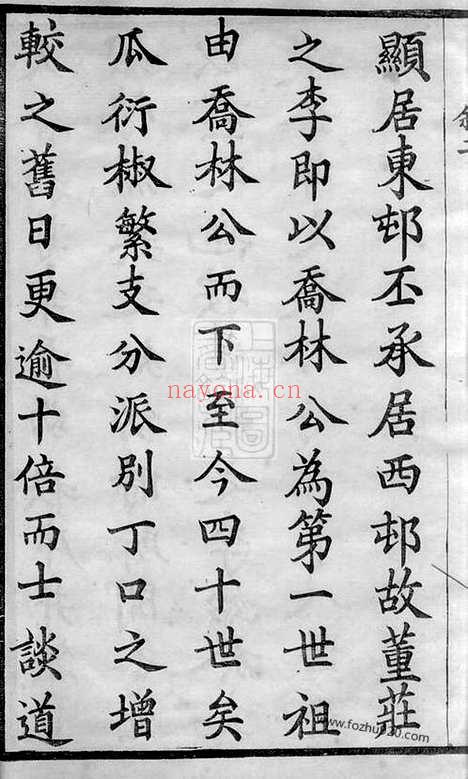 顯居東邨丕承居西邨故董莊
之李即以喬林公為第一世祖
由喬林公而下至今四十世矣
瓜衍椒繁支分派別丁口之增
較之舊日更逾十倍而士談道
nayona.cn
www.fozhu920.com